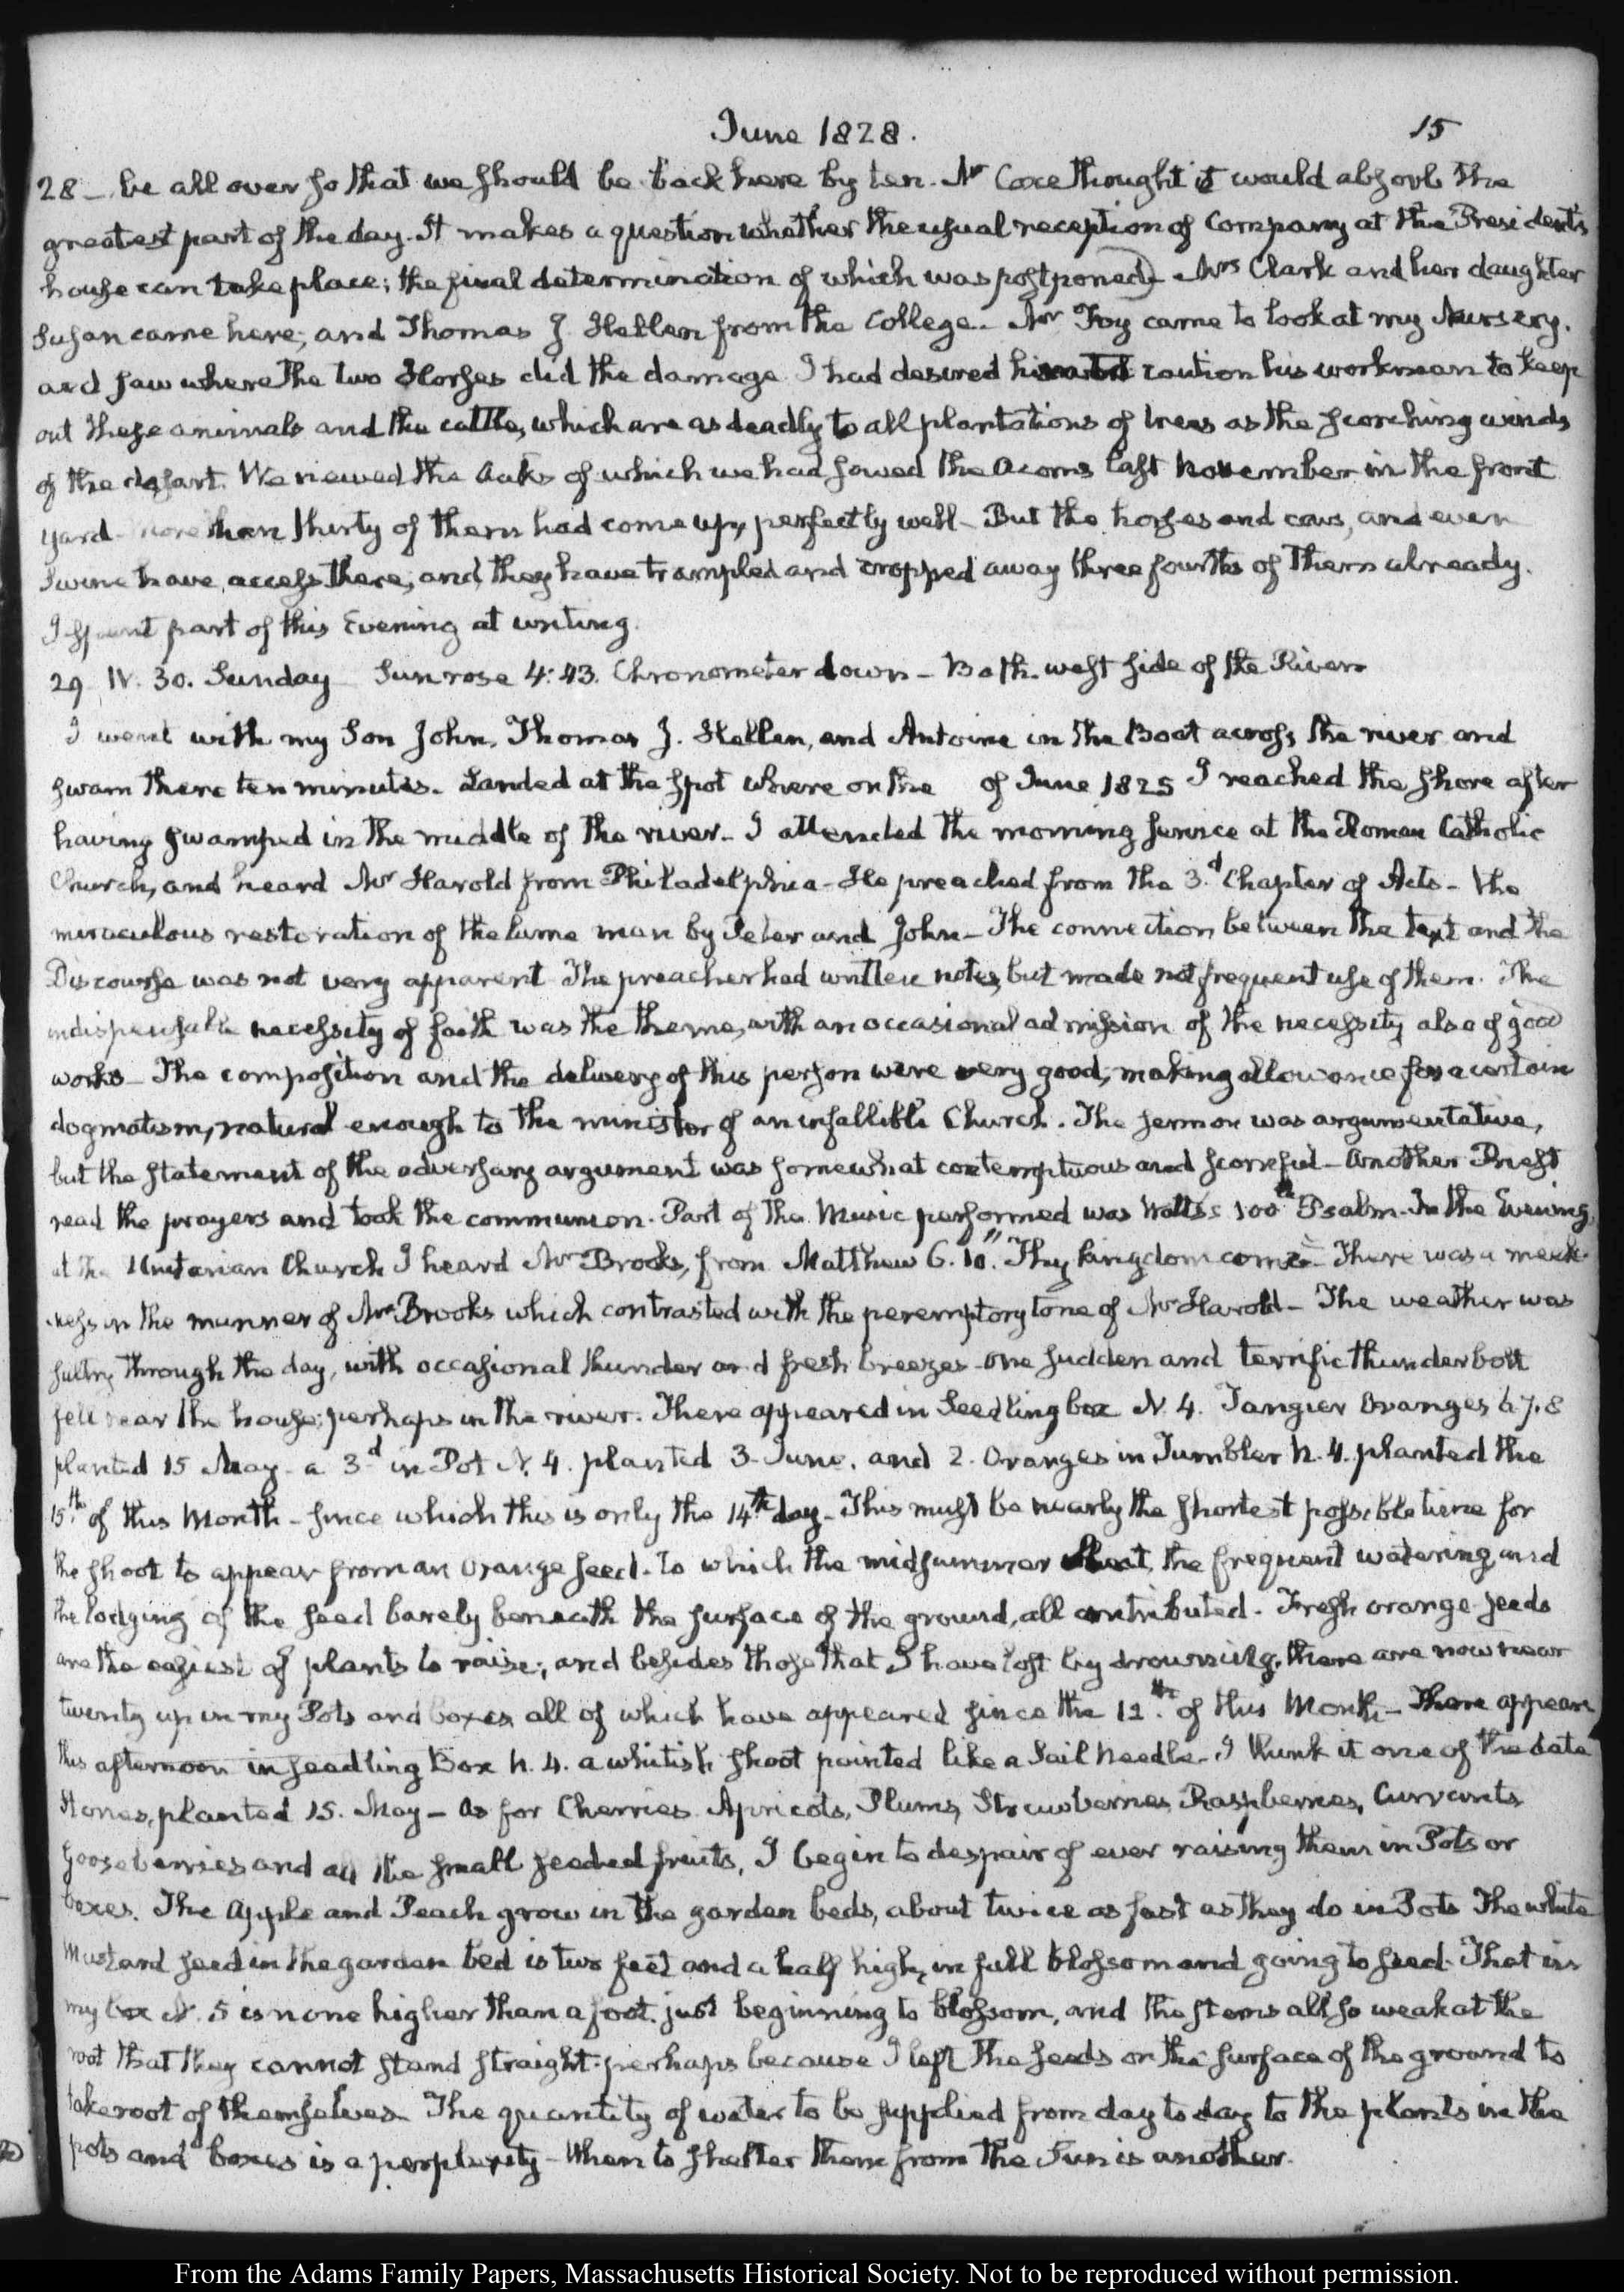 June 1828.
15
28 – be all over so that we should be back here by ten. Mr Coxe thought it would absorb the
greatest part of the day. It makes a question whether the usual reception of Company at the President's
house can take place; the final determination of which was postponed) Mrs Clark and her daughter
Susan came here; and Thomas J. Hellen from the College. Mr Foy came to look at my Nursery.
and saw where the two Horses did the damage. I had desired him to caution his workmen to keep
out these animals and the cattle, which are as deadly to all plantations of trees as the scorching winds
of the desart. We viewed the Oaks of which we had sowed the Acorns last November in the front
yard – more than thirty of them had come up, perfectly well – But the horses and cows, and even
Swine have access there, and they have trampled and cropped away three fourths of them already.
I spent part of this Evening at writing.
29. IV. 30. Sunday Sun rose 4:43. Chronometer down – Bath. west side of the River.
I went with my Son John, Thomas J. Hellen, and Antoine in the Boat across the river and
swam there ten minutes. Landed at the spot where on the of June 1825 I reached the shore after
having swamped in the middle of the river – I attended the morning service at the Roman Catholic
Church, and heard Mr Harold from Philadelphia – He preached from the 3.d Chapter of Acts – the
miraculous restoration of the lame man by Peter and John – The connection between the text and the
Discourse was not very apparent The preacher had written notes, but made not frequent use of them. The
indispensable necessity of faith was the theme, with an occasional admission of the necessity also of good
works – The composition and the delivery of this person were very good, making allowance for a certain
dogmatism, natural enough to the minister of an infallible Church. The sermon was argumentative,
but the statement of the adversary argument was somewhat contemptuous and scornful – Another Priest
read the prayers and took the communion. Part of the Music performed was Watts's 100th Psalm. In the Evening,
at the Unitarian Church I heard Mr Brooks, from Matthew 6. 10. "Thy kingdom come" There was a meek-
ness in the manner of Mr Brooks which contrasted with the peremptory tone of Mr Harold – The weather was
sultry through the day, with occasional thunder and fresh breezes – one sudden and terrific thunderbolt
fell near the house; perhaps in the river. There appeared in Seedling box N. 4. Tangier Oranges 6. 7. 8
planted 15 May – a 3d in Pot N. 4. planted 3 June, and 2. Oranges in Tumbler N. 4. planted the
15.th of this Month – since which this is only the 14th day – This must be nearly the shortest possible time for
the shoot to appear from an Orange seed. to which the midsummer heat, the frequent watering and
the lodging of the seed barely beneath the surface of the ground, all contributed. Fresh orange seeds
are the easiest of plants to raise; and besides those that I have lost by drowning, there are now near
twenty up in my Pots and boxes all of which have appeared since the 12.th of this Month – There appeared
this afternoon in seedling Box N. 4. a whitish shoot pointed like a Sail Needle – I think it one of the date
Stones, planted 15. May – As for Cherries Apricots, Plums, Strawberries Raspberries, Currants
Gooseberries and all the small seeded fruits, I begin to despair of ever raising them in Pots or
boxes. The Apple and Peach grow in the garden beds, about twice as fast as they do in Pots The white
Mustard seed in the garden bed is two feet and a half high, in full blossom and going to seed. That in
my box N. 5 is none higher than a foot. just beginning to blossom, and the stems all so weak at the
root that they cannot stand straight: perhaps because I left the seeds on the surface of the ground to
take root of themselves. The quantity of water to be supplied from day to day to the plants in the
pots and boxes is a perplexity – When to shelter them from the Sun is another.
From the Adams Family Papers, Massachusetts Historical Society. Not to be reproduced without permission.